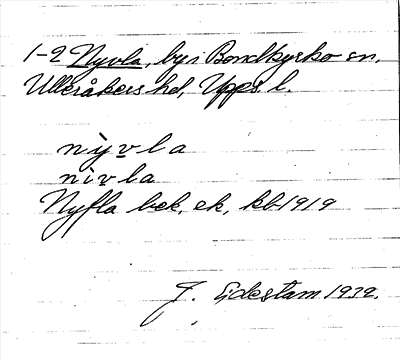 1-2 Nyvla, by i Bondkyrko sn,
Ulleråkers hd, Upps. l.
nỳv̲la
nìv̲la
Nyfla bek. ek, kb 1919
J. Eidestam 1932.